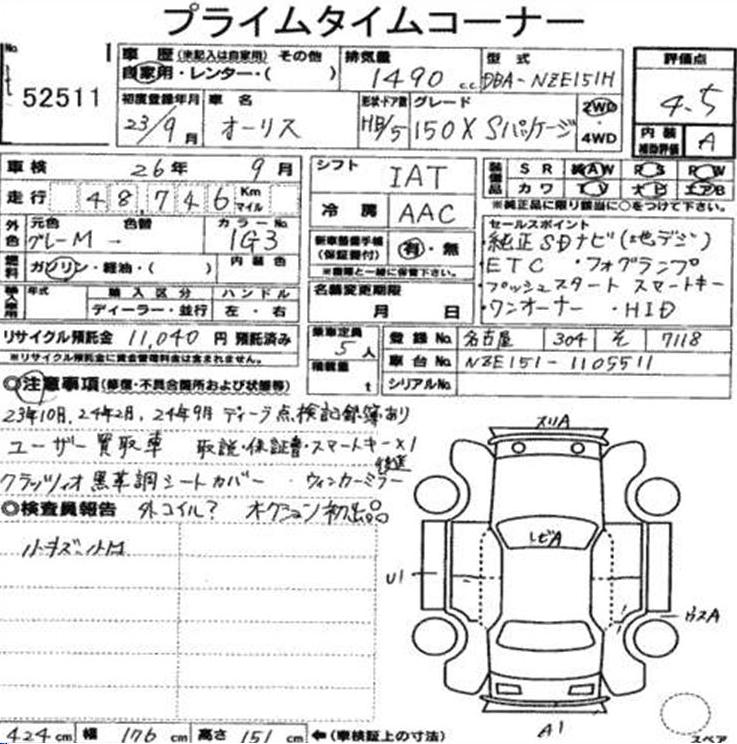 プライムタイムコーナー
No.
52511
車歴 (未記入は自家用) その他
自家用・レンター・( )
排気量
1490 c.c.
型式
DBA-NZE151H
評価点
4.5
内装補助評価 A
初度登録年月
23/9月
車名
オーリス
形状・ドア数
HB/5
グレード
150X Sパッケージ
2WD
・
4WD
車検 26年 9月
走行 48746 Km マイル
外色 元色 色替 カラーNo.
グレーM → 1G3
燃料 ガソリン・軽油・( ) 内装色
輸入車用 年式 輸入区分 ハンドル
ディーラー・並行 左・右
リサイクル預託金 11,040 円 預託済み
※リサイクル預託金に資金管理料金は含まれません。
シフト IAT
冷房 AAC
新車整備手帳(保証書付) 有・無
※書類と一緒に保管下さい。
名義変更期限
月 日
乗車定員 5人
積載量 t
装備品 SR 純AW RS PW
カワ TV ナビ エアB
※純正品に限り該当に○をつけて下さい。
セールスポイント
・純正SDナビ(地デジ)
・ETC ・フォグランプ
・プッシュスタート スマートキー
・ワンオーナー ・HID
登録No. 名古屋 304 そ 7118
車台No. NZE151-1105511
シリアルNo.
◎注意事項(修復・不具合箇所および状態等)
23年10月, 24年2月, 24年9月 ディーラ点検記録簿あり
ユーザー買取車 取説・保証書・スマートキー×1
クラッツィオ黒革調シートカバー ・ウィンカーミラー
◎検査員報告 外コイル? オークション初出品
小キズ・小凹
スリA
トビA
U1
ウスA
A1
スペア
424cm 幅 176cm 高さ 151cm ←(車検証上の寸法)